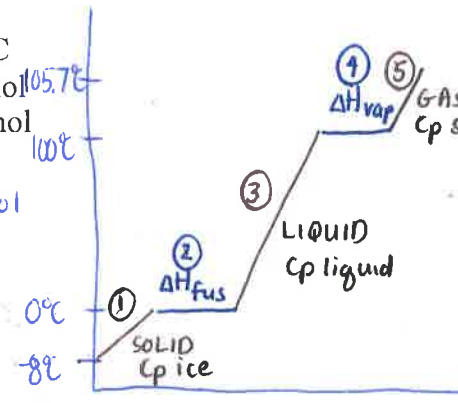 C
105.7°C
mol
100°C
ol
0°C
-8°C
①
SOLID
Cp ice
②
ΔHfus
③
LIQUID
Cp liquid
④
ΔHvap
⑤
GAS
Cp